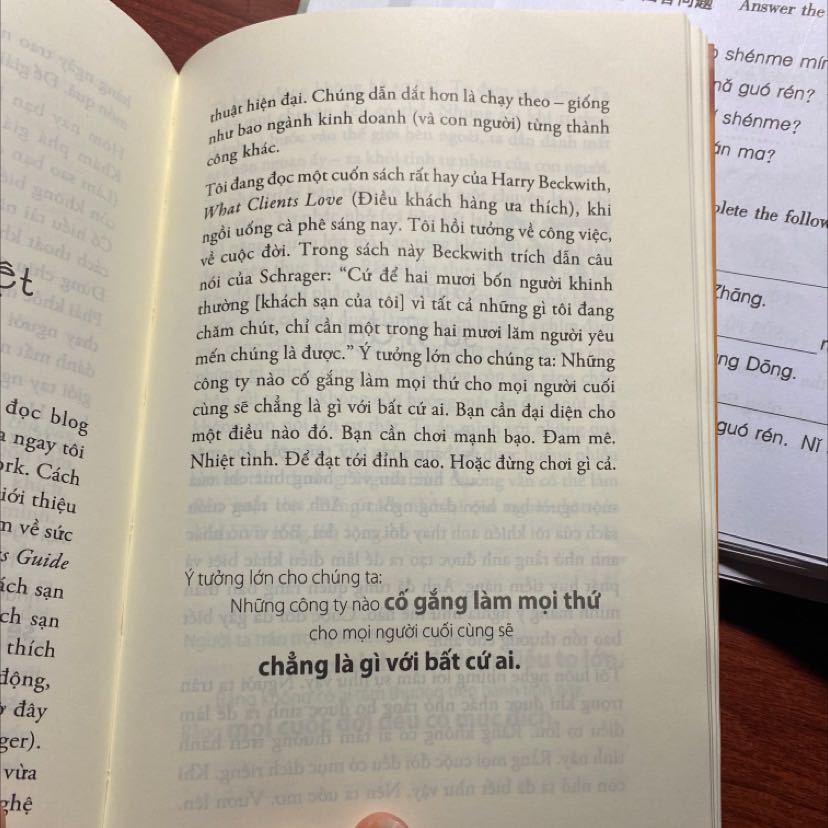 ệt
đọc blog
ngay tôi
ork. Cách
iới thiệu
m về sức
s Guide
ách sạn
ch sạn
thích
động,
ở đây
ger).
vừa
ghệ
thuật hiện đại. Chúng dẫn dắt hơn là chạy theo – giống
như bao ngành kinh doanh (và con người) từng thành
công khác.
Tôi đang đọc một cuốn sách rất hay của Harry Beckwith,
What Clients Love (Điều khách hàng ưa thích), khi
ngồi uống cà phê sáng nay. Tôi hồi tưởng về công việc,
về cuộc đời. Trong sách này Beckwith trích dẫn câu
nói của Schrager: “Cứ để hai mươi bốn người khinh
thường [khách sạn của tôi] vì tất cả những gì tôi đang
chăm chút, chỉ cần một trong hai mươi lăm người yêu
mến chúng là được.” Ý tưởng lớn cho chúng ta: Những
công ty nào cố gắng làm mọi thứ cho mọi người cuối
cùng sẽ chẳng là gì với bất cứ ai. Bạn cần đại diện cho
một điều nào đó. Bạn cần chơi mạnh bạo. Đam mê.
Nhiệt tình. Để đạt tới đỉnh cao. Hoặc đừng chơi gì cả.
Ý tưởng lớn cho chúng ta:
Những công ty nào cố gắng làm mọi thứ
cho mọi người cuối cùng sẽ
chẳng là gì với bất cứ ai.
问题 Answer the
shénme mín
nǎ guó rén?
shénme?
án ma?
plete the follow
Zhāng.
ng Dōng.
guó rén. Nǐ